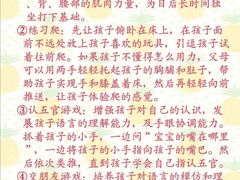 、背、腰部的肌肉力量，为日后长时间独
坐打下基础。
②练习爬：先让孩子俯卧在床上，在孩子面
前不远处放上孩子喜欢的玩具，引逗孩子试
着往前爬。如果孩子不懂得怎么用力，父母
可以用两手轻轻托起孩子的胸脯和肚子，帮
助孩子实现手和膝盖着床，然后再轻轻向前
推进，让孩子体验爬的感觉。
③认五官游戏：增强孩子对自己的认识，发
展孩子语言的理解能力，及手眼协调能力。
握着孩子的小手，一边问“宝宝的嘴在哪里
”，一边将孩子的小手指向孩子的嘴巴。然
后依次类推，直到孩子学会自己指认五官。
④交朋友游戏：培养孩子对语言的模仿和理